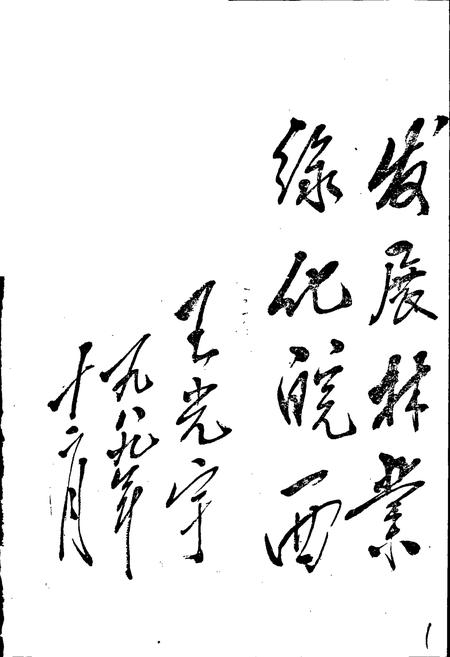 发展林业
绿化皖西
王光宇
一九八九年
十二月